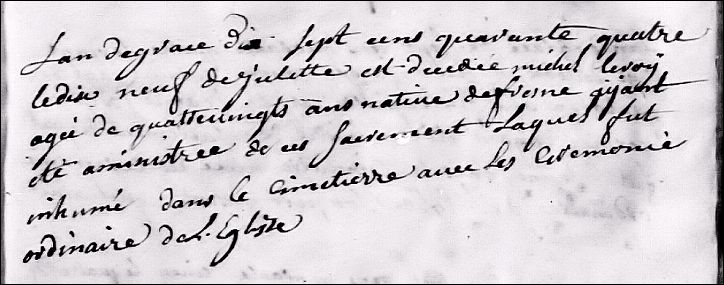 Lan de grace dix sept cens quarante quatre
le dix neuf de juliette est decedée michel leroÿ
ageé de quattevingts ans native de fresne ayant
eté aministreé de ces sacrement Laquel fut
inhumé dans le cimetierre avec les ceremonie
ordinaire de L Eglise